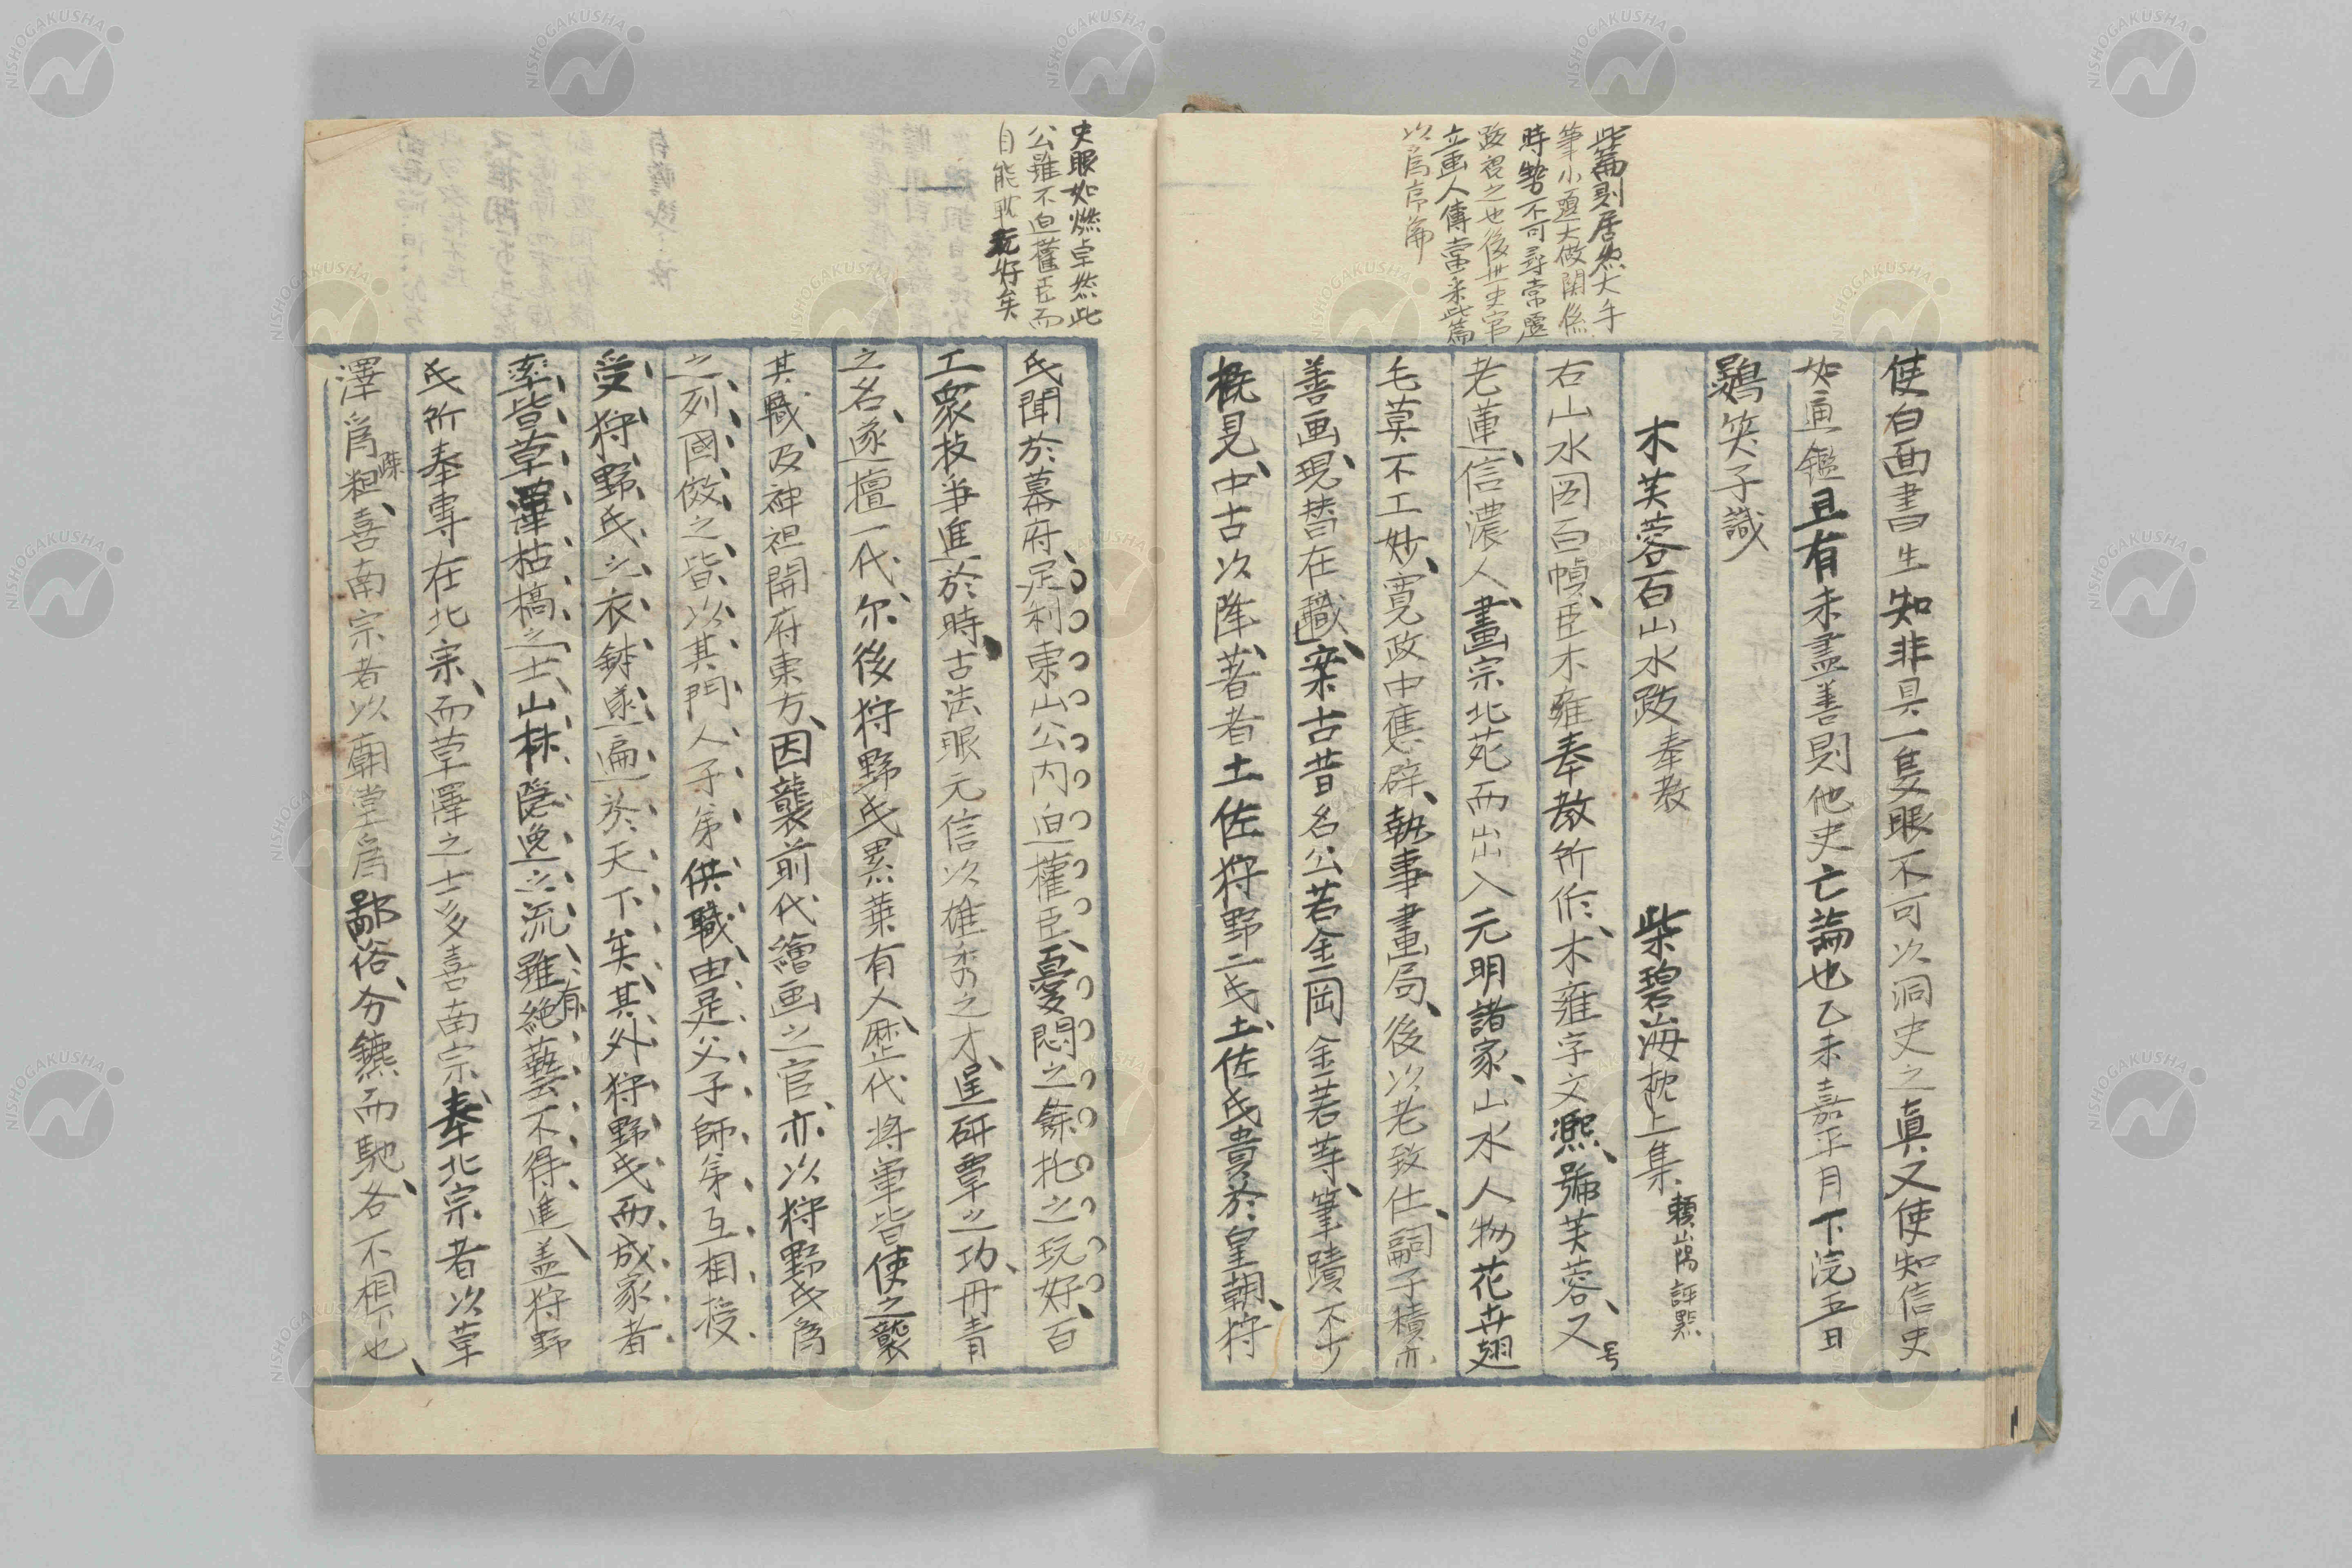 此篇則居然大手
筆小題大做関係
時勢不可尋常題
跋視之也後世史官
立画人傳當采此篇
以為序論
使白面書生知非具一隻眼不可以洞史之真又使知信史
如通鑑且有未盡善則他史亡論也乙未嘉平月下浣五日
鷃笑子識
木芙蓉百山水跋 奉教 柴碧海枕上集 頼山陽評點
右山水図百幀臣木雍奉教所作木雍字文熈號芙蓉又号
老蓮信濃人畫宗北苑而出入元明諸家山水人物花卉翅
毛莫不工妙寛政中應辟執事畫局後以老致仕嗣子積亦
善画現替在職案古昔名公若金岡金若等筆蹟不少
概見中古以降著者土佐狩野二氏土佐氏貴於皇朝狩
史眼如燃卓然此
公雖不迫權臣而
自能耽玩好矣
氏聞於幕府足利東山公内迫權臣憂悶之餘托之玩好百
工衆技争進於時古法眼元信以雄秀之才逞研覃之功丹青
之名遂擅一代尓後狩野氏累葉有人歴代将軍皆使之襲
其職及神祖開府東方因襲前代繪画之官亦以狩野氏為
之列國傚之皆以其門人子弟供職由是父子師弟互相授
受狩野氏之衣鉢遂遍於天下矣其外狩野氏而成家者
率皆草澤枯槁之士山林隠逸之流雖有絶藝不得進盖狩野
氏所奉専在北宗而草澤之士多喜南宗奉北宗者以草
澤為粗疎喜南宗者以廟堂為鄙俗分鑣而馳各不相下也
NISHOGAKUSHA